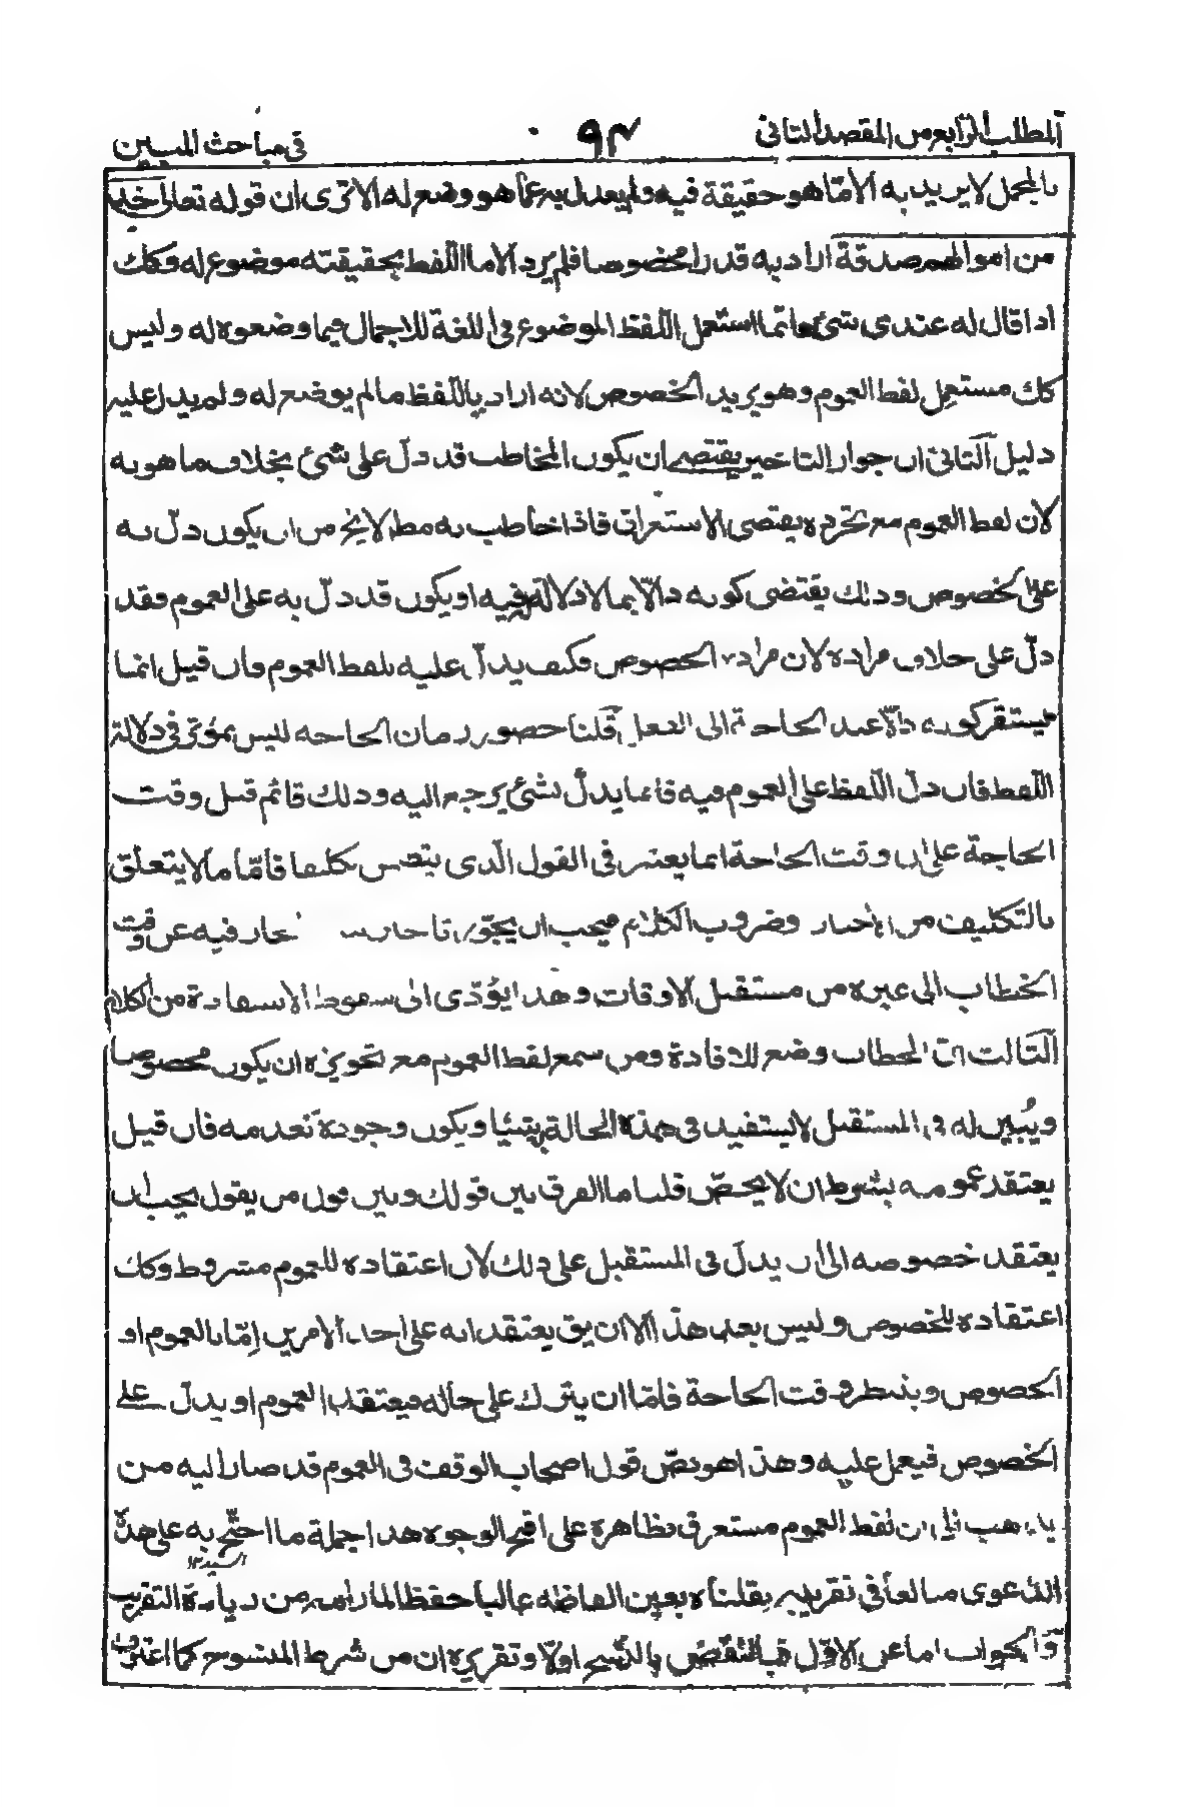 المطلب الرابع من المقصد الثانى ٩٣ فى مباحث المبين
بالمجمل لا يريد به الا ما هو حقيقة فيه ولم يعدل به عما هو وضع له الا ترى ان قوله تعالى خذ
من اموالهم صدقة اراد به قدرا مخصوصا فلم يرد الا ما اللفظ بحقيقته موضوع له وكك
اذا قال له عندى شئ وانما استعمل اللفظ الموضوع فى اللغة للاجمال فيما وضعوه له وليس
كك مستعمل لفظ العموم وهو يريد الخصوص لانه اراد باللفظ ما لم يوضع له ولم يدل عليه
دليل الثانى ان جواز التاخير يقتضى ان يكون المخاطب قد دل على شئ بخلاف ما هو به
لان لفظ العموم مع تجرده يقتضى الاستغراق فاذا خاطب به مط لا يخ من ان يكون دل به
على الخصوص وذلك يقتضى كونه دالا بما لا دلالة فيه او يكون قد دل به على العموم فقد
دل على خلاف مراده لان مراده الخصوص فكيف يدل عليه بلفظ العموم فان قيل انما
يستقر كونه دالا عند الحاجة الى الفعل قلنا حضور زمان الحاجه ليس بمؤثر فى دلالة
اللفظ فان دل اللفظ على العموم فيه فانما يدل بشئ يرجع اليه وذلك قائم قبل وقت
الحاجة على ان وقت الحاجة انما يعتبر فى القول الذى يتضمن تكليفا فاما ما لا يتعلق
بالتكليف من الاخبار وضروب الكلام فيجب ان يجوز تاخير بيان المجاز فيه عن وقت
الخطاب الى غيره من مستقبل الاوقات وهذا يؤدى الى سقوط الاستفادة من الكلام
الثالث ان الخطاب وضع للافادة ومن سمع لفظ العموم مع تجويزه ان يكون مخصوصا
ويبين له فى المستقبل لا يستفيد فى هذه الحالة به شيئا ويكون وجوده كعدمه فان قيل
يعتقد عمومه بشرط ان لا يخص قلنا ما الفرق بين قولك وبين قول من يقول يجب ان
يعتقد خصوصه الى ان يدل فى المستقبل على ذلك لان اعتقاده للعموم مشروط وكك
اعتقاده للخصوص وليس بعد هذا الا ان يق يعتقد انه على احد الامرين اما العموم او
الخصوص وينتظر وقت الحاجة فاما ان يترك على حاله فيعتقد العموم او يدل على
الخصوص فيعمل عليه وهذا هو نص قول اصحاب الوقف فى العموم قد صار اليه من
يذهب الى ان لفظ العموم مستغرق بظاهره على اقبح الوجوه هذا جملة ما احتج به على هذه
السيد ١٢
الدعوى مبالغا فى تقريبه نقلناه بعين الفاظه غالبا حفظا لما رامه من زيادة التقريب
والجواب اما عن الاول فبالنقض بالنسخ اولا وتقريره ان من شرط المنسوخ كما اعترف